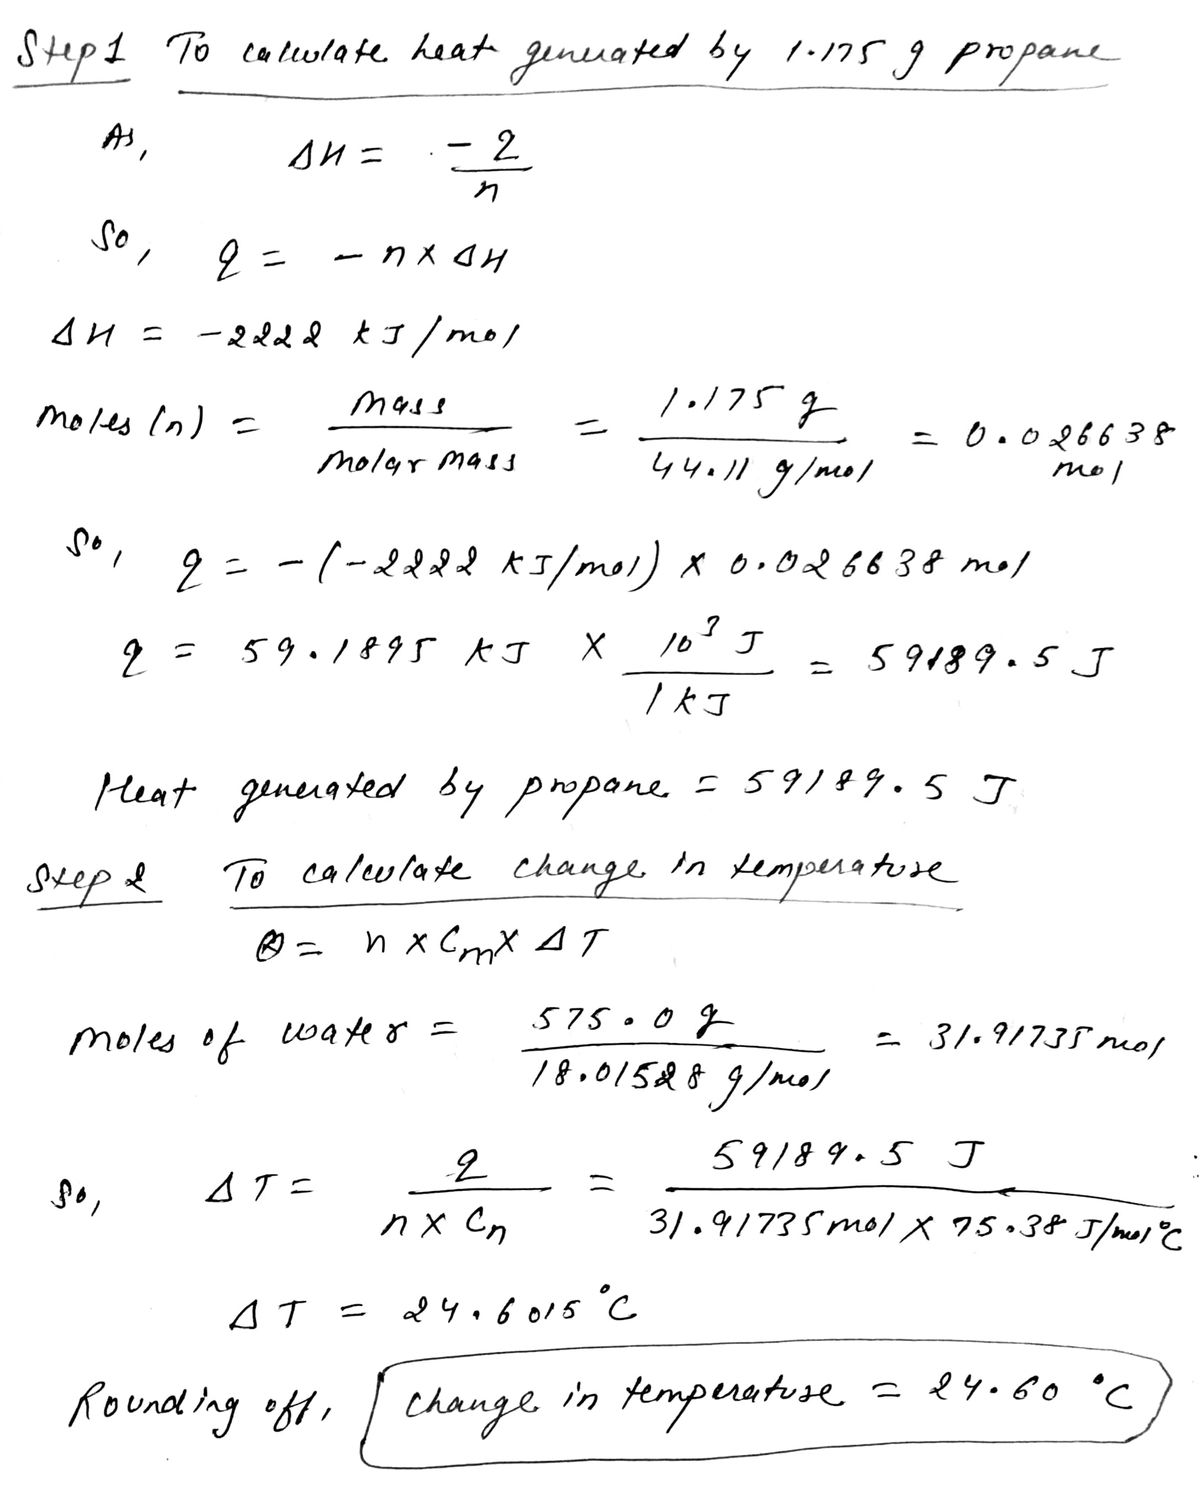 Step 1 To calculate heat generated by 1.175 g propane
As, ΔH = -q/n
So, q = - n x ΔH
ΔH = -2222 kJ/mol
Moles (n) = Mass/Molar mass = 1.175 g/44.11 g/mol = 0.026638 mol
So, q = -(-2222 kJ/mol) x 0.026638 mol
q = 59.1895 kJ x 10³ J/1 kJ = 59189.5 J
Heat generated by propane = 59189.5 J
Step 2 To calculate change in temperature
Q = n x Cm x ΔT
Moles of water = 575.0 g/18.01528 g/mol = 31.91735 mol
So, ΔT = q/n x Cn = 59189.5 J/31.91735 mol x 75.38 J/mol°C
ΔT = 24.6015 °C
Rounding off, Change in temperature = 24.60 °C